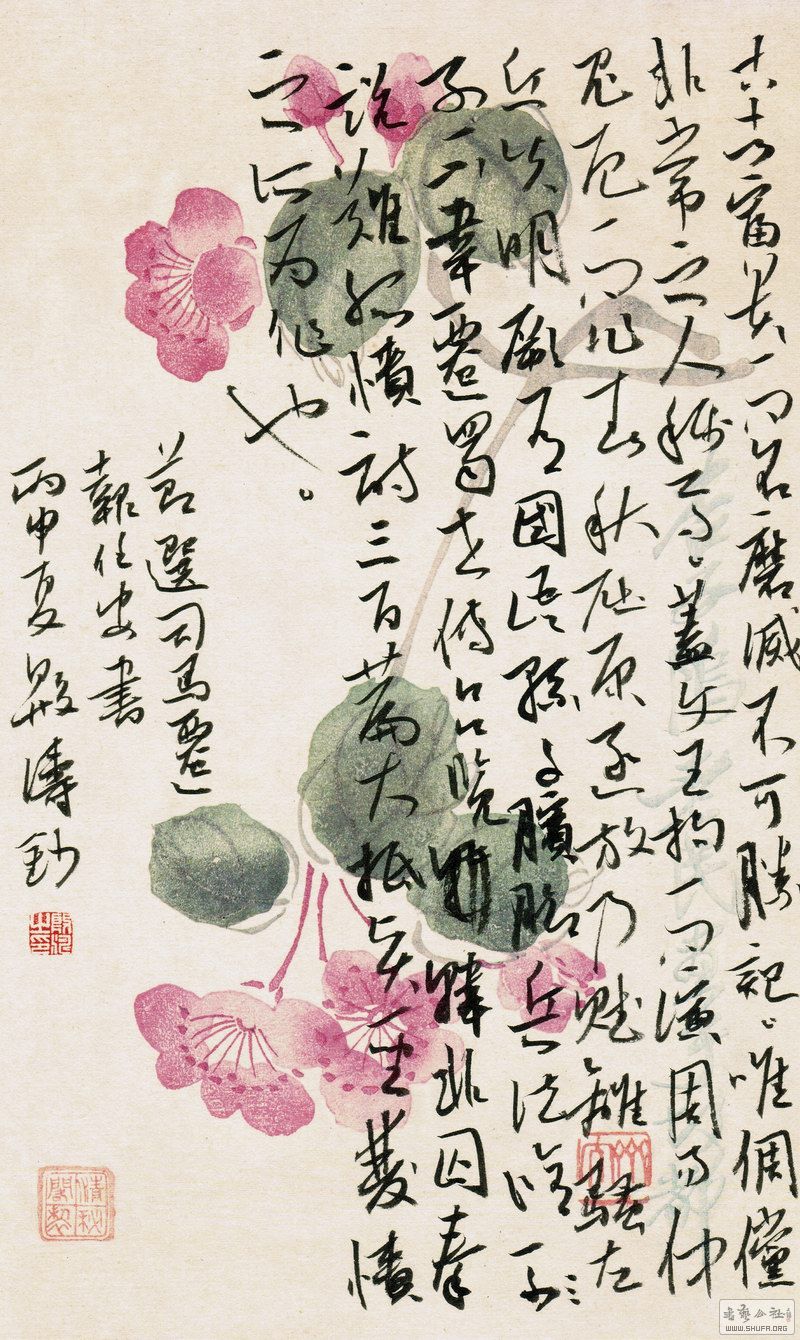 古者富貴而名磨滅不可勝記。唯倜儻
非常之人稱焉。蓋文王拘而演周易仲
尼厄而作春秋屈原逐放乃賦離騷左
丘失明厥有國語孫子臏腳兵法修
不韋遷蜀世傳呂覽韓非囚秦
說難孤憤詩三百篇大抵賢聖發憤
之所為作也。
節選司馬遷
報任安書
丙申夏殷濤鈔
清秘
閣製
書藝公社
WWW.SHUFA.ORG